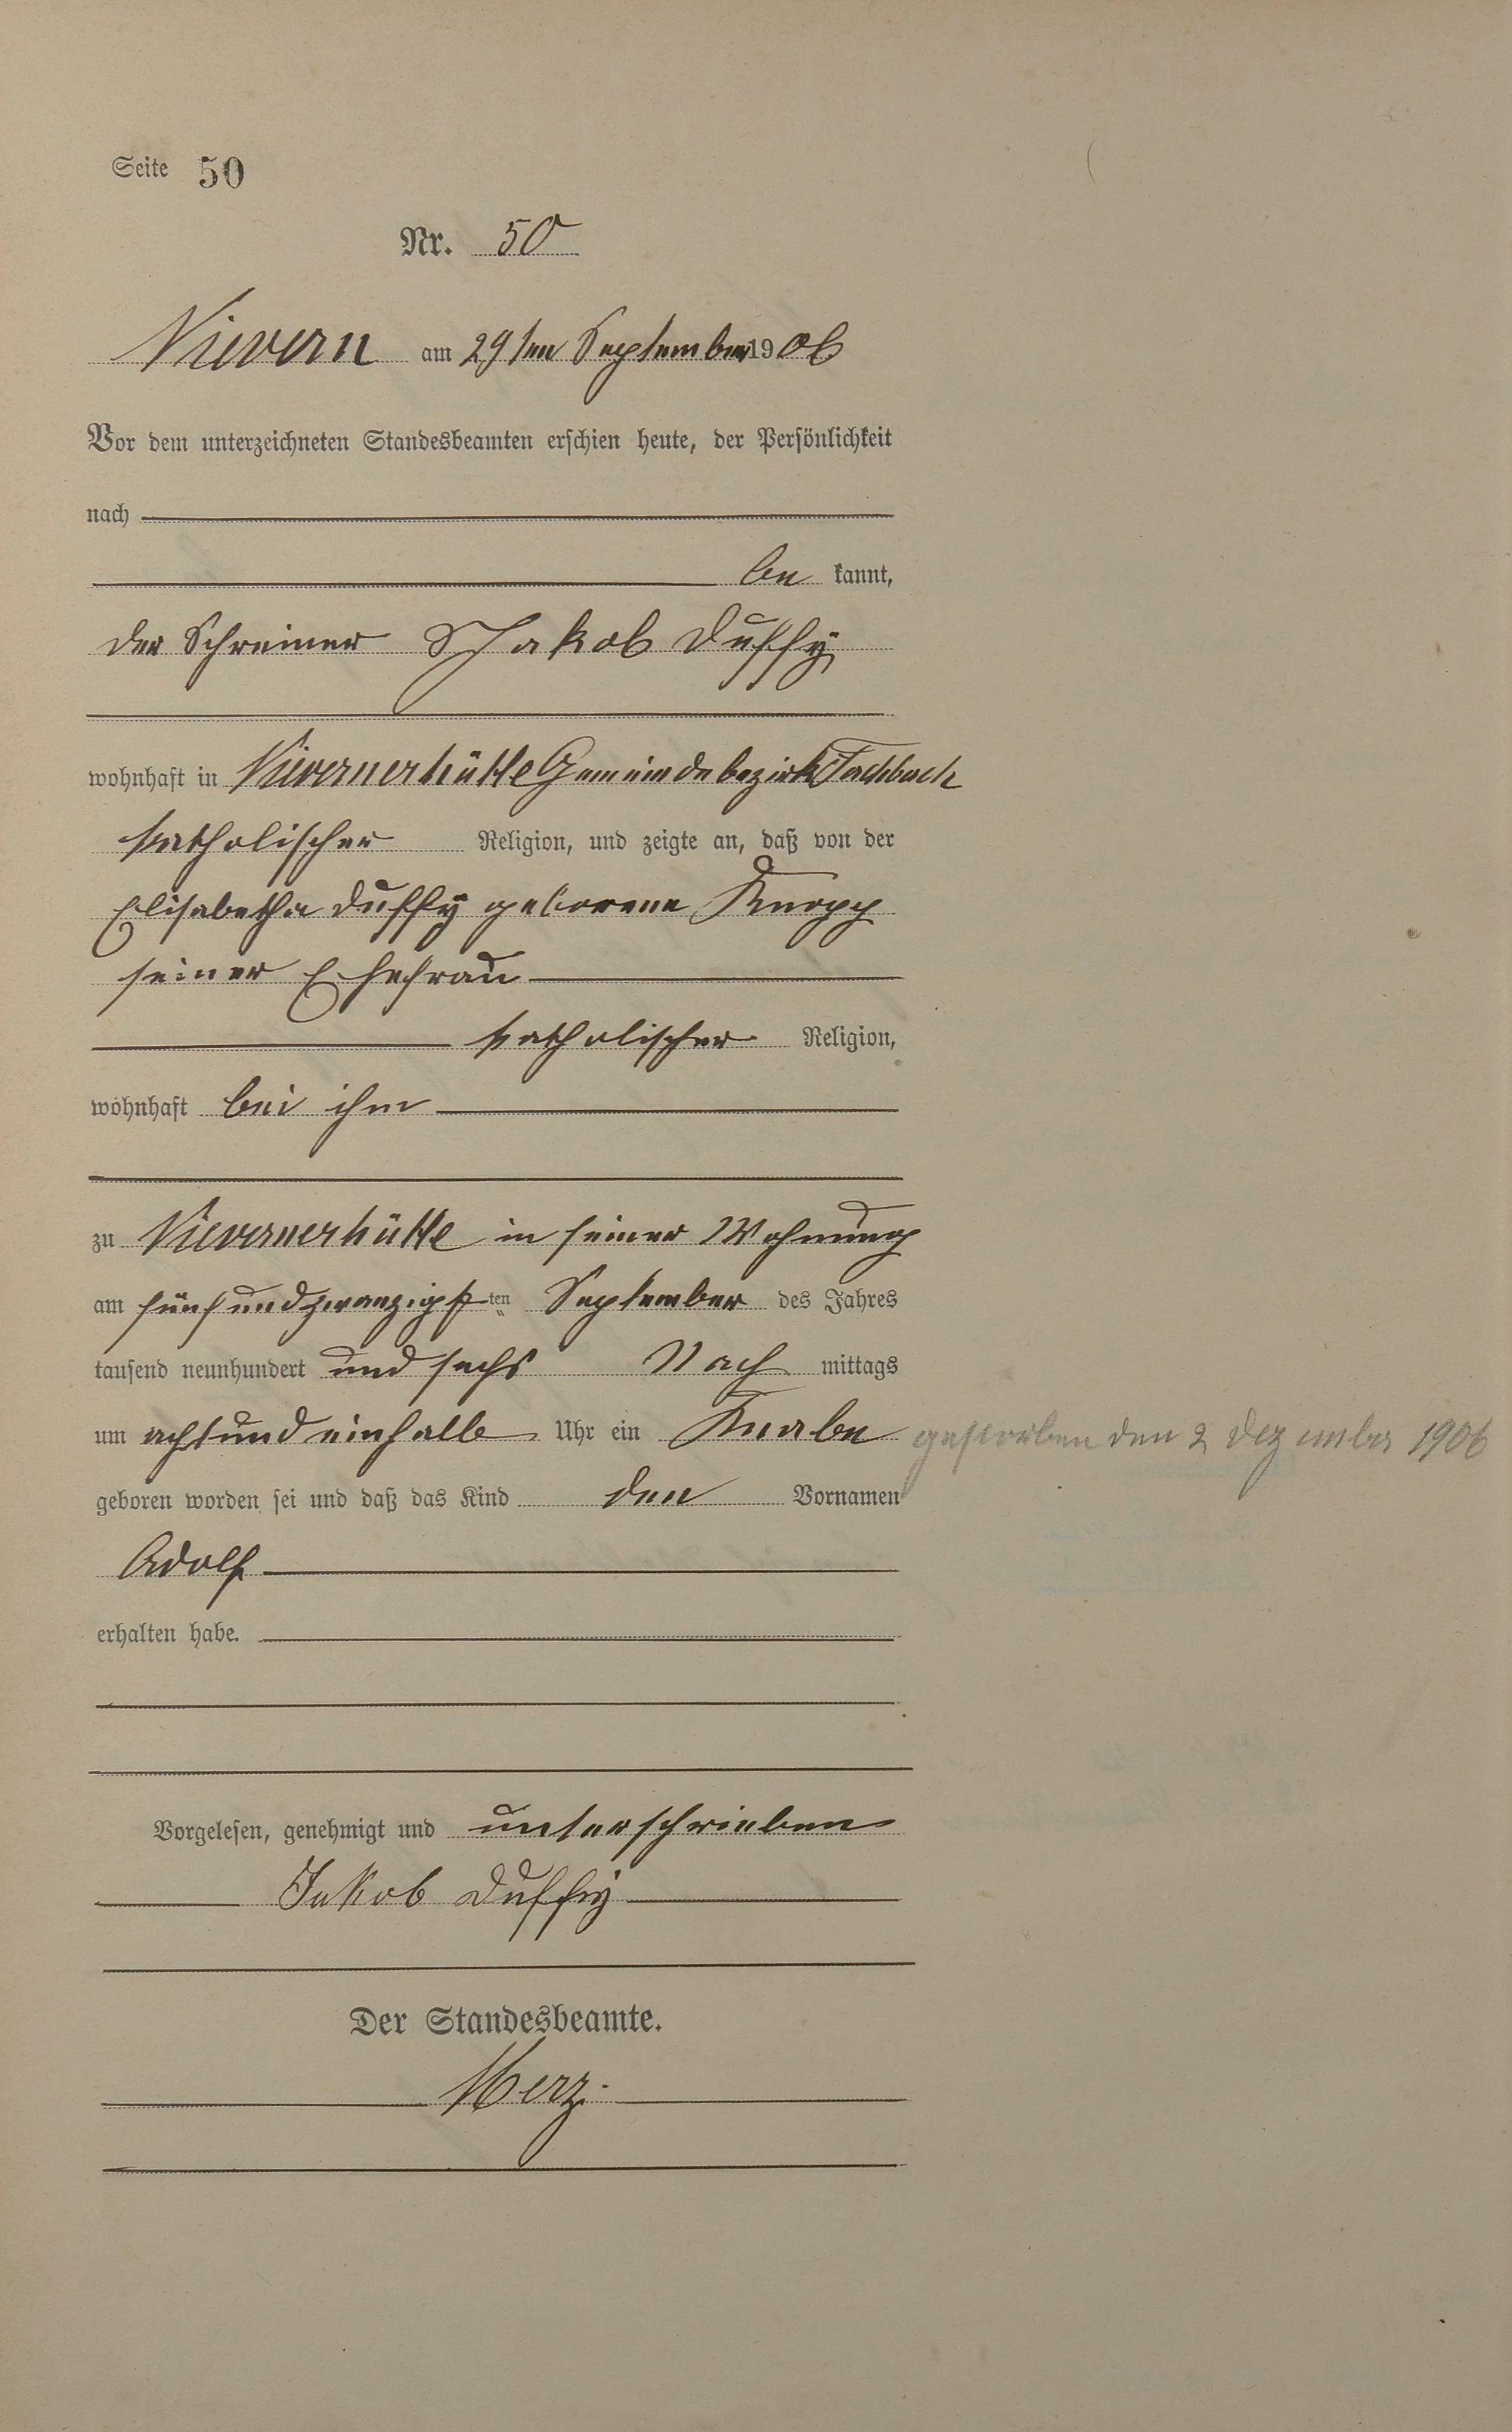 Seite 50
Nr. 50
Nievern am 29ten September 1906
Vor dem unterzeichneten Standesbeamten erschien heute, der Persönlichkeit
nach
be kannt,
der Schreiner Jakob Duffy
wohnhaft in Nievernerhütte Gemeindebezirk Fachbach
katholischer Religion, und zeigte an, daß von der
Elisabetha Duffy geborene Knopp
seiner Ehefrau
katholischer Religion,
wohnhaft bei ihm
zu Nievernerhütte in seiner Wohnung
am fünfundzwanzigsten September des Jahres
tausend neunhundert und sechs Nach mittags
um acht und einhalb Uhr ein Knabe
gestorben den 2 Dezember 1906
geboren worden sei und daß das Kind den Vornamen
Adolf
erhalten habe.
Vorgelesen, genehmigt und unterschrieben
Jakob Duffy
Der Standesbeamte.
Merz.